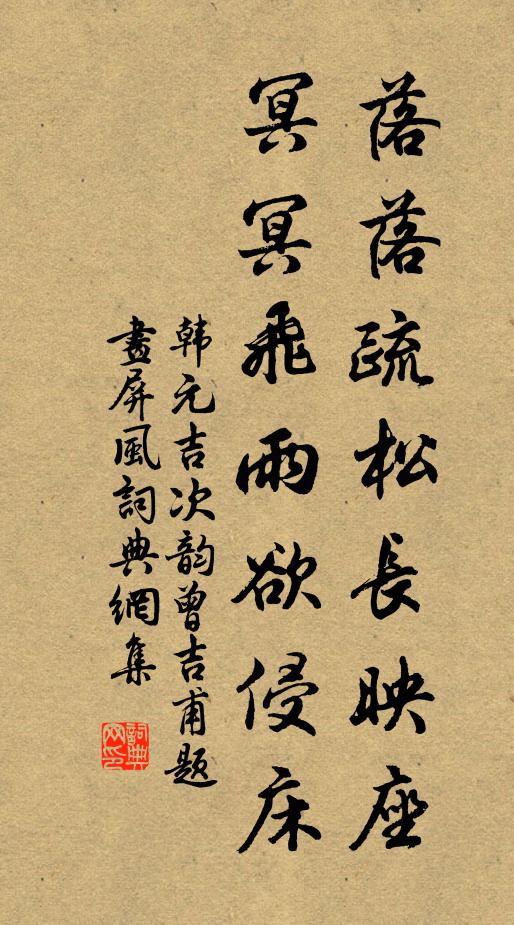 落落疏松長映座
冥冥飛雨欲侵床
韩元吉次韵曾吉甫题
畫屏風詞典網集
詞典网印